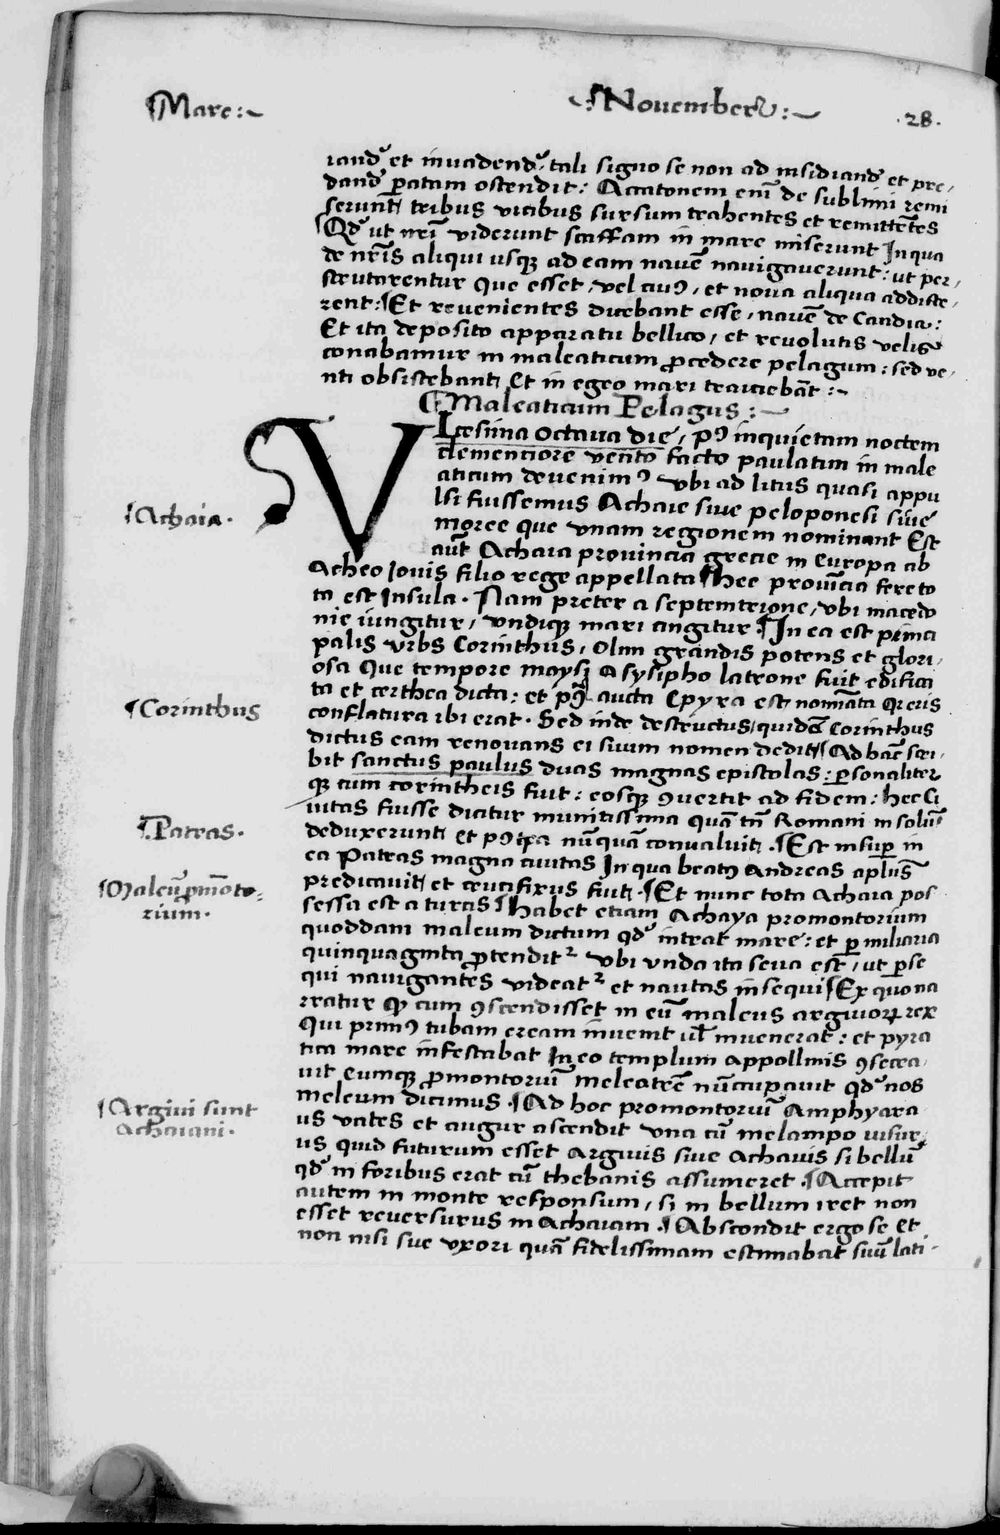 ¶Mare:~
~¶Nouember:~
.28.
iand' et inuadend', tali signo se non ad insidiand' et pre,
dand' patam ostendit: Accatonem eni̅ de sublimi remi
serunt tribus vicibus sursum trahentes et remitte̅tes
¶Qd' ut nr̅i viderunt scaffam in mare miserunt In qua
de nr̅is aliqui usqꝫ ad eam naue̅ nauigauerunt: ut per,
scrutarentur que esset, vel cuiꝰ, et noua aliqua addisce,
rent: ¶Et reuenientes dicebant esse, naue̅ de Candia:
Et ita deposito apparatu bellico, et reuolutis velis
conabamur in maleaticum ꝓcedere pelagum: sed ve,
nti obsistebant, Et in egeo mari traiicieba̅t:~
¶Maleaticum Pelagus:~
VIcesima octaua die, pꝰ inquietam noctem
clementiore vento facto paulatim in male
aticum deuenimꝰ vbi ad litus quasi appu
lsi fuissemus Achaie siue peloponesi siue
moree que vnam regionem nominant Est
aut̅ Achaia prouincia grecie in Europa ab
Acheo Iouis filio rege appellata ¶hec prouincia fere to
ta est Insula. Nam preter a septemtrione, vbi macedo
nie iungitur, vndiqꝫ mari cingitur. ¶In ea est princi
palis vrbs Corinthus, olim grandis potens et glori,
osa Que tempore moysi a sysipho latrone fuit edifica
ta et certhea dicta: et pꝰ aucta Epyra est nominata Qr eris
conflatura ibi erat. Sed inde destructus, quidam Corinthus
dictus eam renouans ei suum nomen dedit ¶Ad hac̅ scri,
bit sanctus paulus duas magnas epistolas: personaliter
qꝫ cum corintheis fuit: eosqꝫ ꝯuertit ad fidem: hec Ci
uitas fuisse dicitur munitissima qua̅ tn̅ Romani in solu̅
deduxerunt et pꝰ ipa nu̅qua̅ conualuit. ¶Est insup in
ea Patras magna ciuitas In qua beatꝰ Andreas aplus̅
predicauit et crucifixus fuit. ¶Et nunc tota Achaia pos
sessa est a turcis ¶habet etiam Achaya promontorium
quoddam maleum dictum qd' intrat mare: et p miliaria
quinquaginta ꝓtendit² vbi vnda ita seua est, ut pse
qui nauigantes videat² et nautas insequi ¶Ex quo na
rratur qꝫ cum ꝯscendisset in eu̅ maleus argiuorꝝ rex
Qui primꝰ tubam eream inuenit vl̅ inuenerat: et pyra
tica mare infestabat In eo templum Appollinis ꝯsecra,
uit eumqꝫ ꝓmontoriu̅ meleatre̅ nu̅cupauit qd' nos
meleum dicimus. ¶Ad hoc promontoriu̅ Amphyara
us vates et augur ascendit vna cu̅ melampo visur,
us quid futurum esset Argiuis siue Achaiis si bellu̅
qd' in foribus erat cu̅ thebanis assumeret. ¶Accepit
autem in monte responsum, si in bellum iret non
esset reuersurus in Achaiam. ¶Abscondit ergo se et
non nisi sue vxori qua̅ fidelissimam estimabat suu̅ lati-
¶Achaia.
¶Corinthus
¶Patras.
¶Maleu̅ ꝓmo̅to=
rium.
¶Argiui sunt
Achaiani.